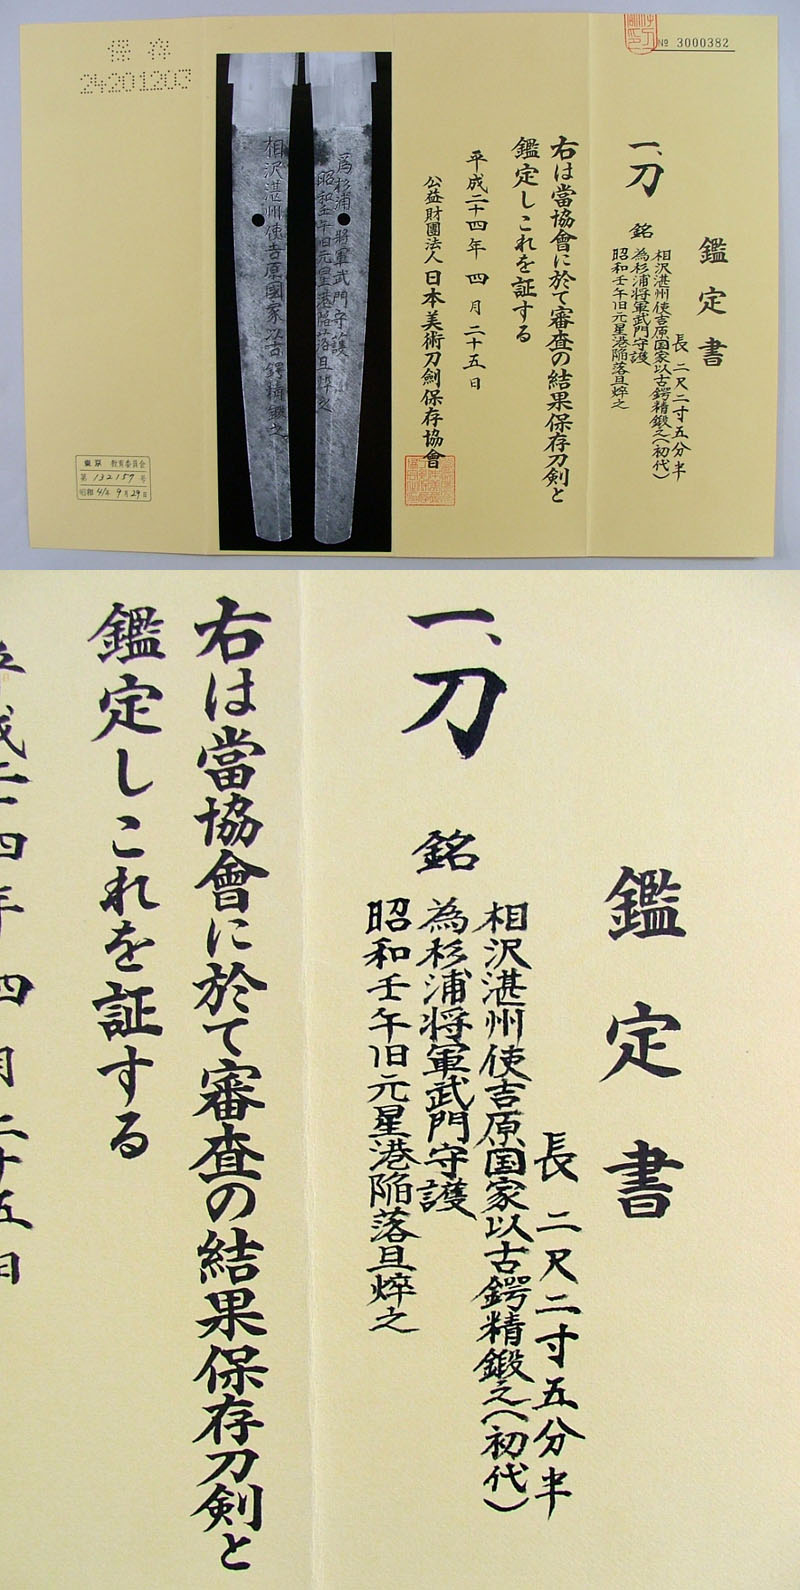 № 3000382
鑑定書
一、刀
長二尺二寸五分半
銘
相沢湛州使吉原国家以古鍔精鍛之(初代)
為杉浦将軍武門守護
昭和壬午旧元星港陥落旦焠之
右は當協會に於て審査の結果保存刀剣と
鑑定しこれを証する
平成二十四年四月二十五日
公益財團法人日本美術刀劍保存協會
為杉浦将軍武門守護
昭和壬午旧元星港陥落旦焠之
相沢湛州使吉原國家以古鍔精鍛之
保存
24201203
東京教育委員会
第132157号
昭和41年9月29日
鑑定書
長二尺二寸五分半
一、刀
銘
相沢湛州使吉原国家以古鍔精鍛之(初代)
為杉浦将軍武門守護
昭和壬午旧元星港陥落旦焠之
右は當協會に於て審査の結果保存刀剣と
鑑定しこれを証する
平成二十四年四月二十五日